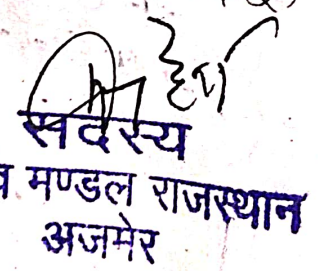 सदस्य
मण्डल राजस्थान
अजमेर